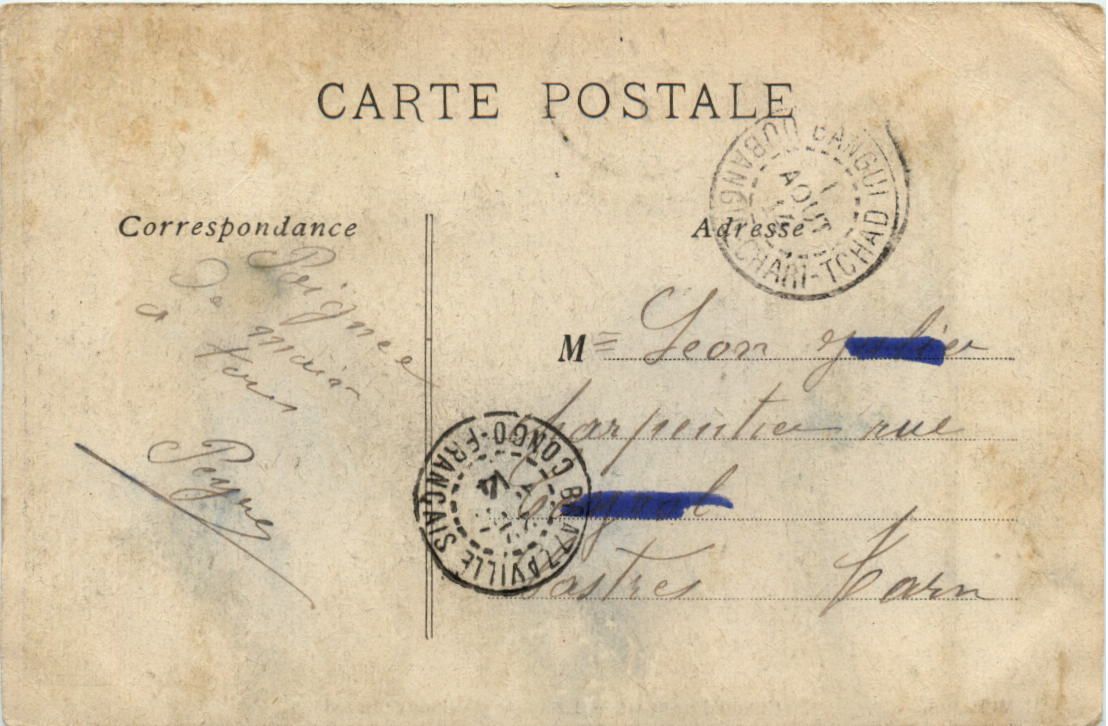 CARTE POSTALE
BANGUI
OUBANGUI-CHARI-TCHAD
AOUT
Correspondance
Adresse
Poignée
De main
a tous
Peyre
M Leon
charpentier rue
Castres Tarn
BRAZZAVILLE
CONGO-FRANÇAIS